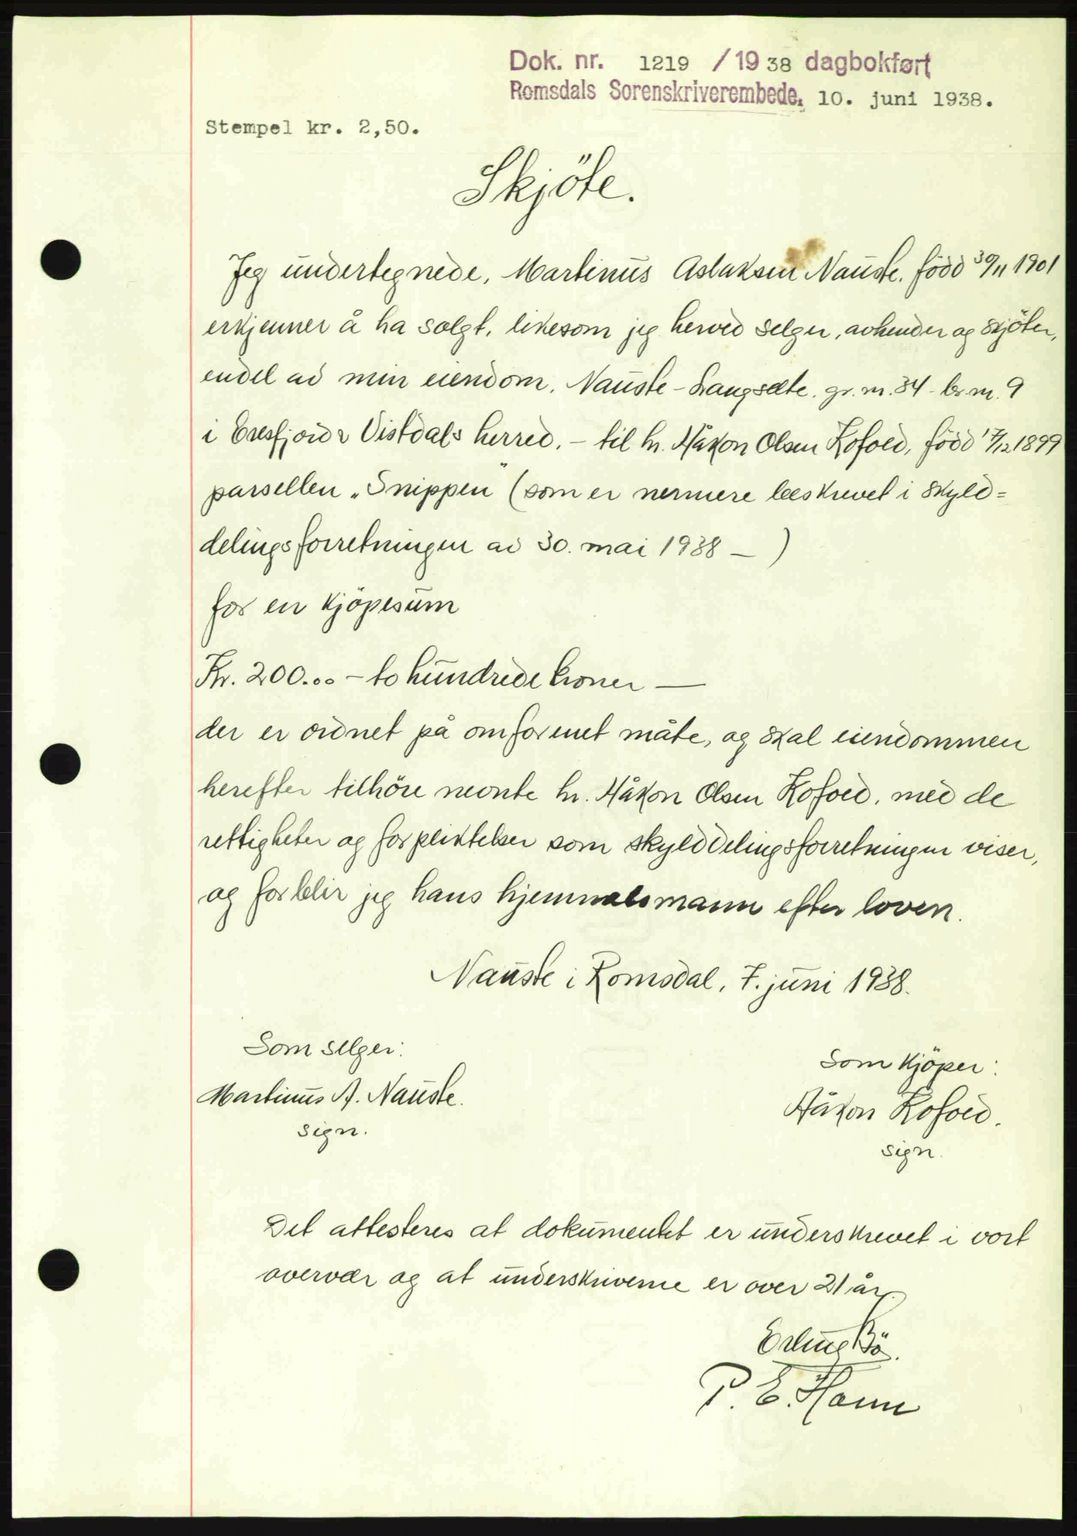 Dok. nr. 1219 /1938 dagbokført
Romsdals Sorenskriverembede, 10. juni 1938.
Stempel kr. 2,50.
Skjöte.
Jeg undertegnede, Martinus Aslaksen Nauste, född 30/11 1901
erkjenner å ha solgt, likesom jeg herved selger, avhender og skjöter,
endel av min eiendom, Nauste-Langsæte, gr. nr. 34 - br. nr. 9
i Eresfjord & Vistdals herred, - til hr. Håkon Olsen Kofoed, född 17/12 1899
parsellen "Snippen" (som er nermere beskrevet i skyld=
delingsforretningen av 30. mai 1938 - )
for en kjöpesum
Kr. 200.00 - to hundrede kroner -
der er ordnet på omforenet måte, og skal eiendommen
herefter tilhöre nevnte hr. Håkon Olsen Kofoed, med de
rettigheter og forpliktelser som skylddelingsforretningen viser,
og forblir jeg hans hjemmelsmann efter loven.
Nauste i Romsdal, 7. juni 1938.
Som selger:
Martinus A. Nauste.
sign.
Som kjöper:
Håkon Kofoed.
sign.
Det attesteres at dokumentet er underskrevet i vort
overvær og at underskriverne er over 21 år.
Erling Bö.
P. E.